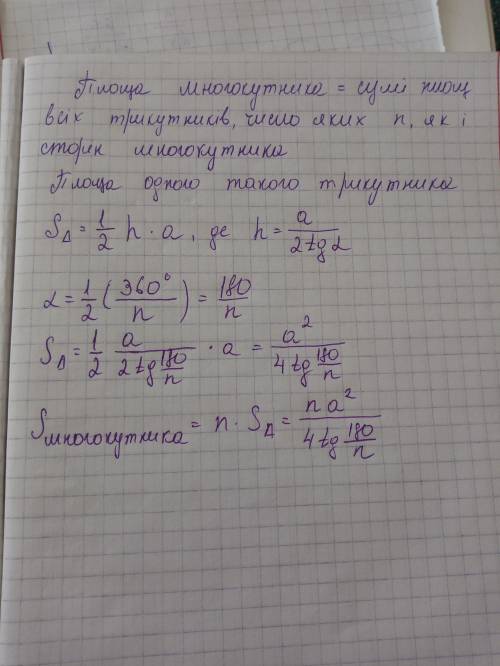 Площа многокутника = сумі площ
всіх трикутників, число яких n, як і
сторін многокутника
Площа одного такого трикутника
S_Δ = 1/2 h · a, де h = a/(2tgα)
α = 1/2 (360°/n) = 180/n
S_Δ = 1/2 a/(2tg 180/n) · a = a²/(4tg 180/n)
S_многокутника = n · S_Δ = na²/(4tg 180/n)